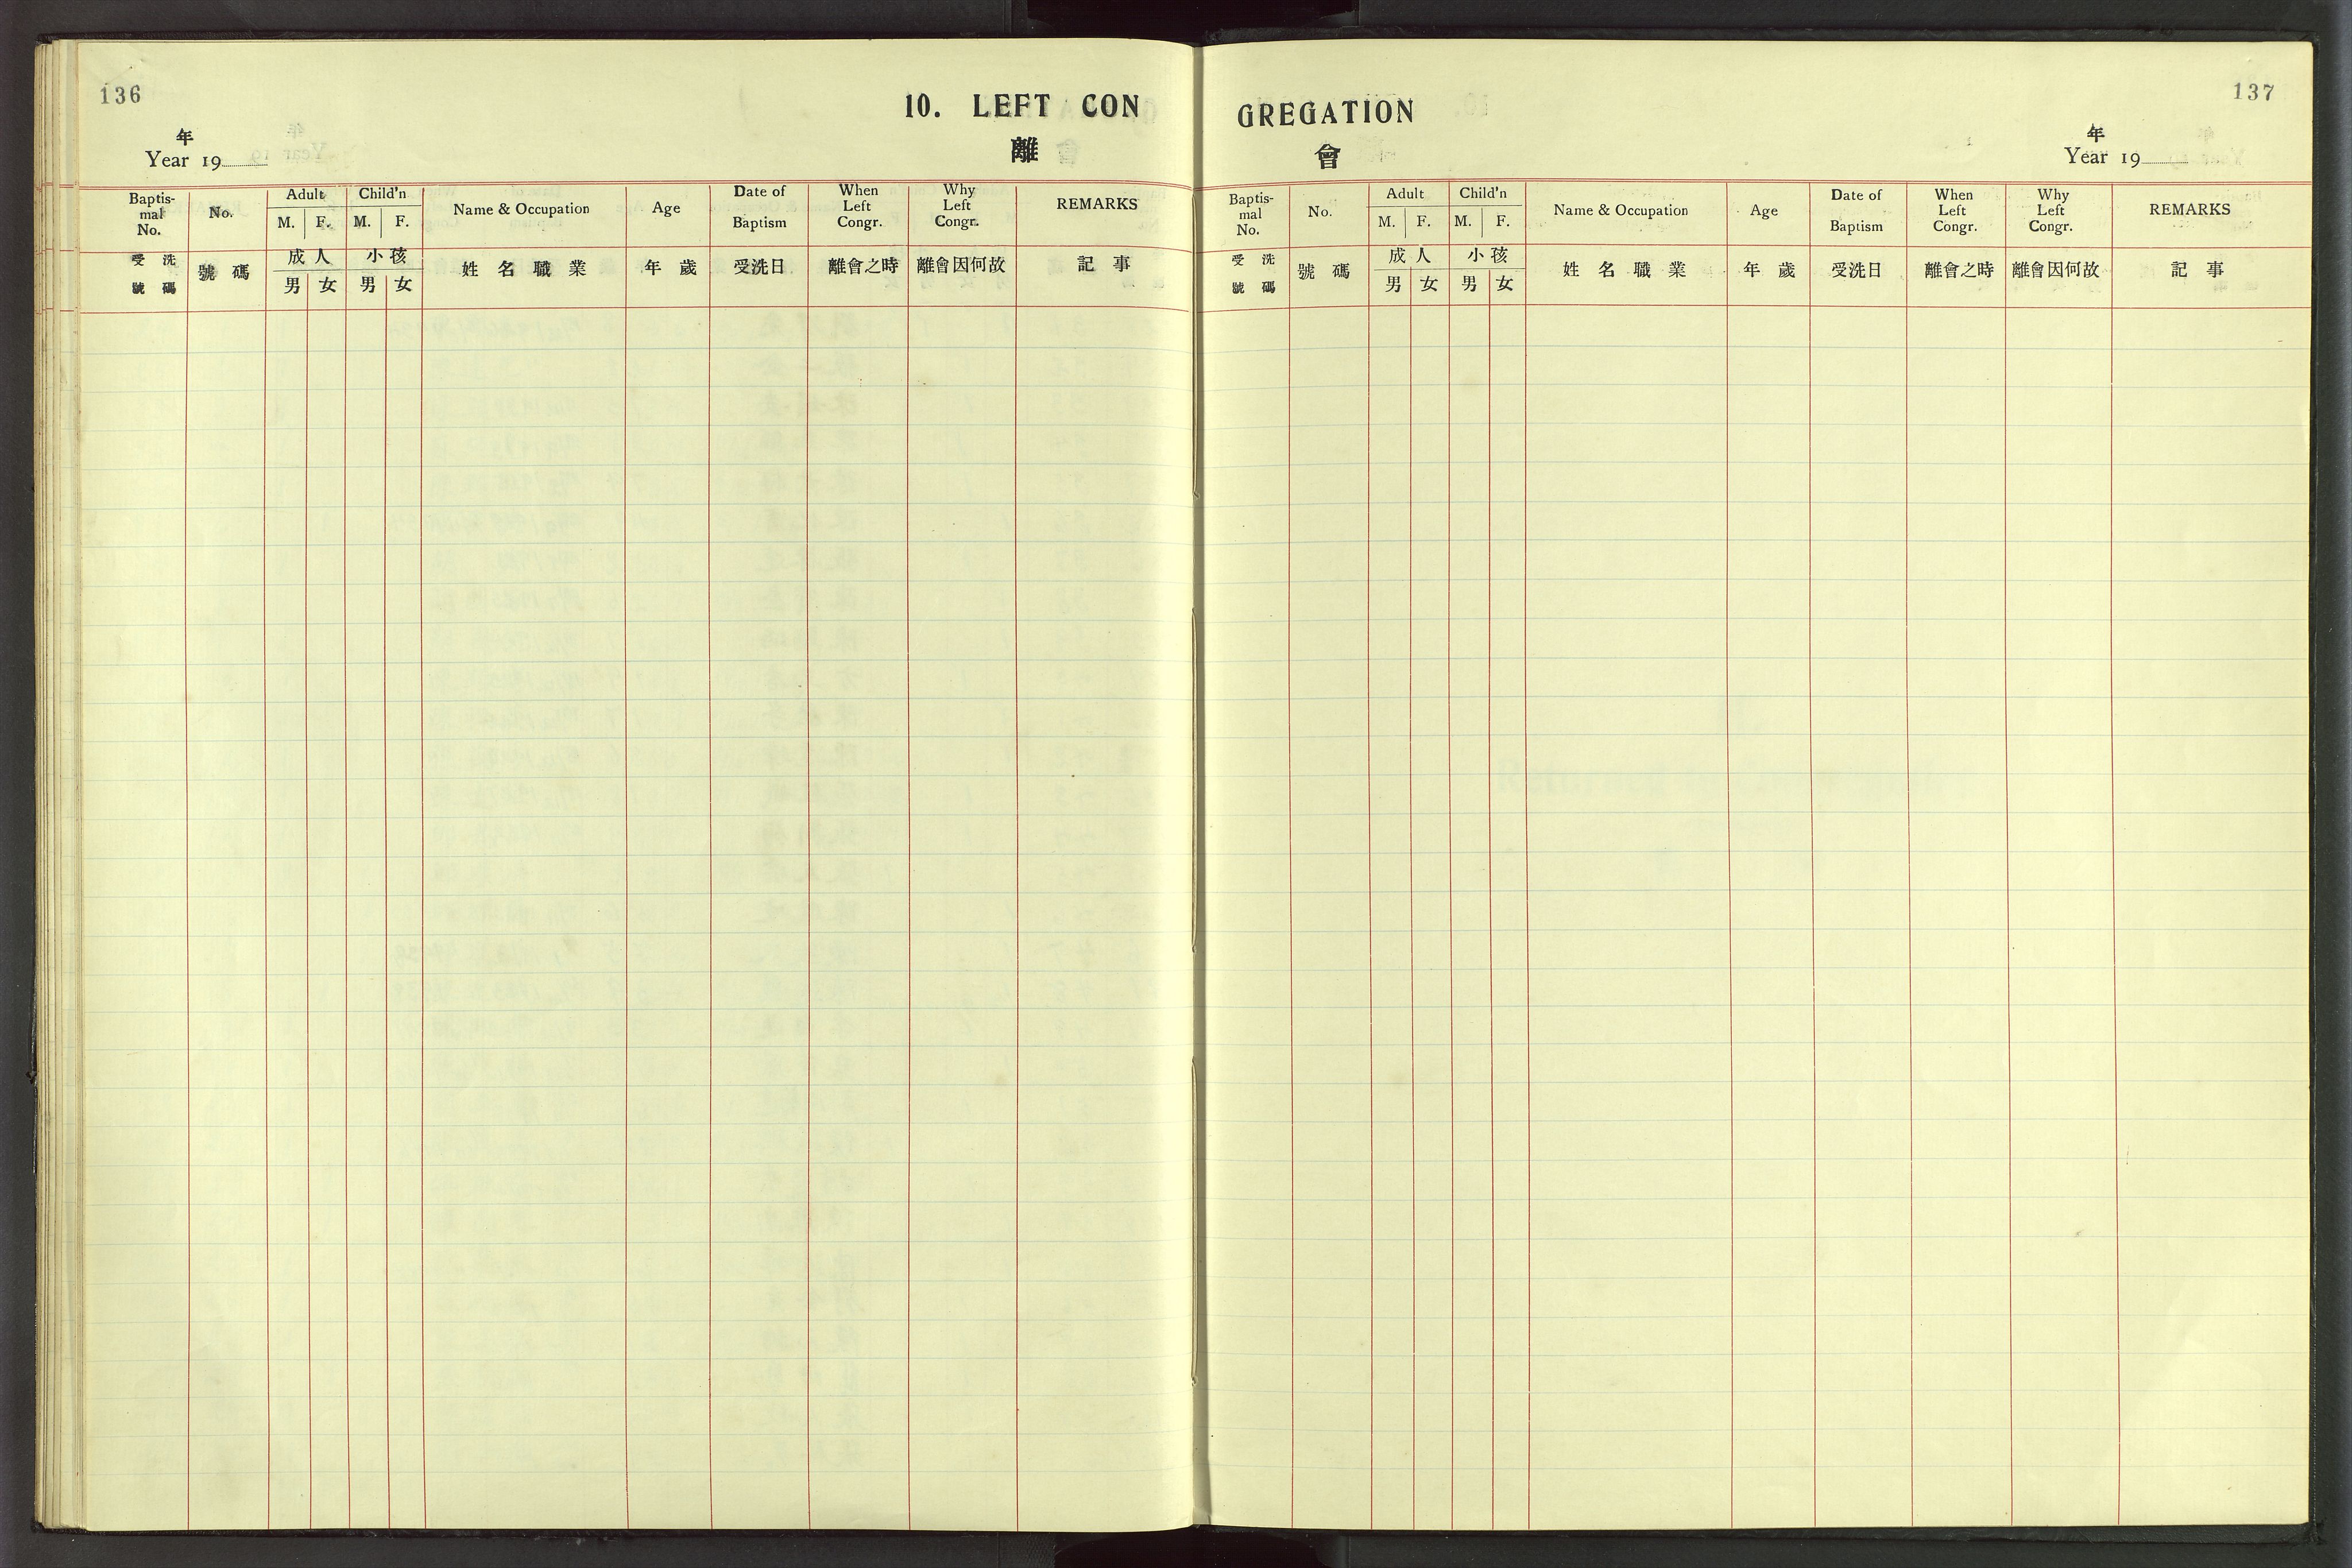 136
10. LEFT CON
離
年
Year 19
Baptis-
mal
No.
No.
Adult
M. F.
Child'n
M. F.
Name & Occupation
Age
Date of
Baptism
When
Left
Congr.
Why
Left
Congr.
REMARKS
受洗
號碼
號碼
成人
男 女
小孩
男 女
姓名職業
年歲
受洗日
離會之時
離會因何故
記事
GREGATION
137
會
年
Year 19
Baptis-
mal
No.
No.
Adult
M. F.
Child'n
M. F.
Name & Occupation
Age
Date of
Baptism
When
Left
Congr.
Why
Left
Congr.
REMARKS
受洗
號碼
號碼
成人
男 女
小孩
男 女
姓名職業
年歲
受洗日
離會之時
離會因何故
記事